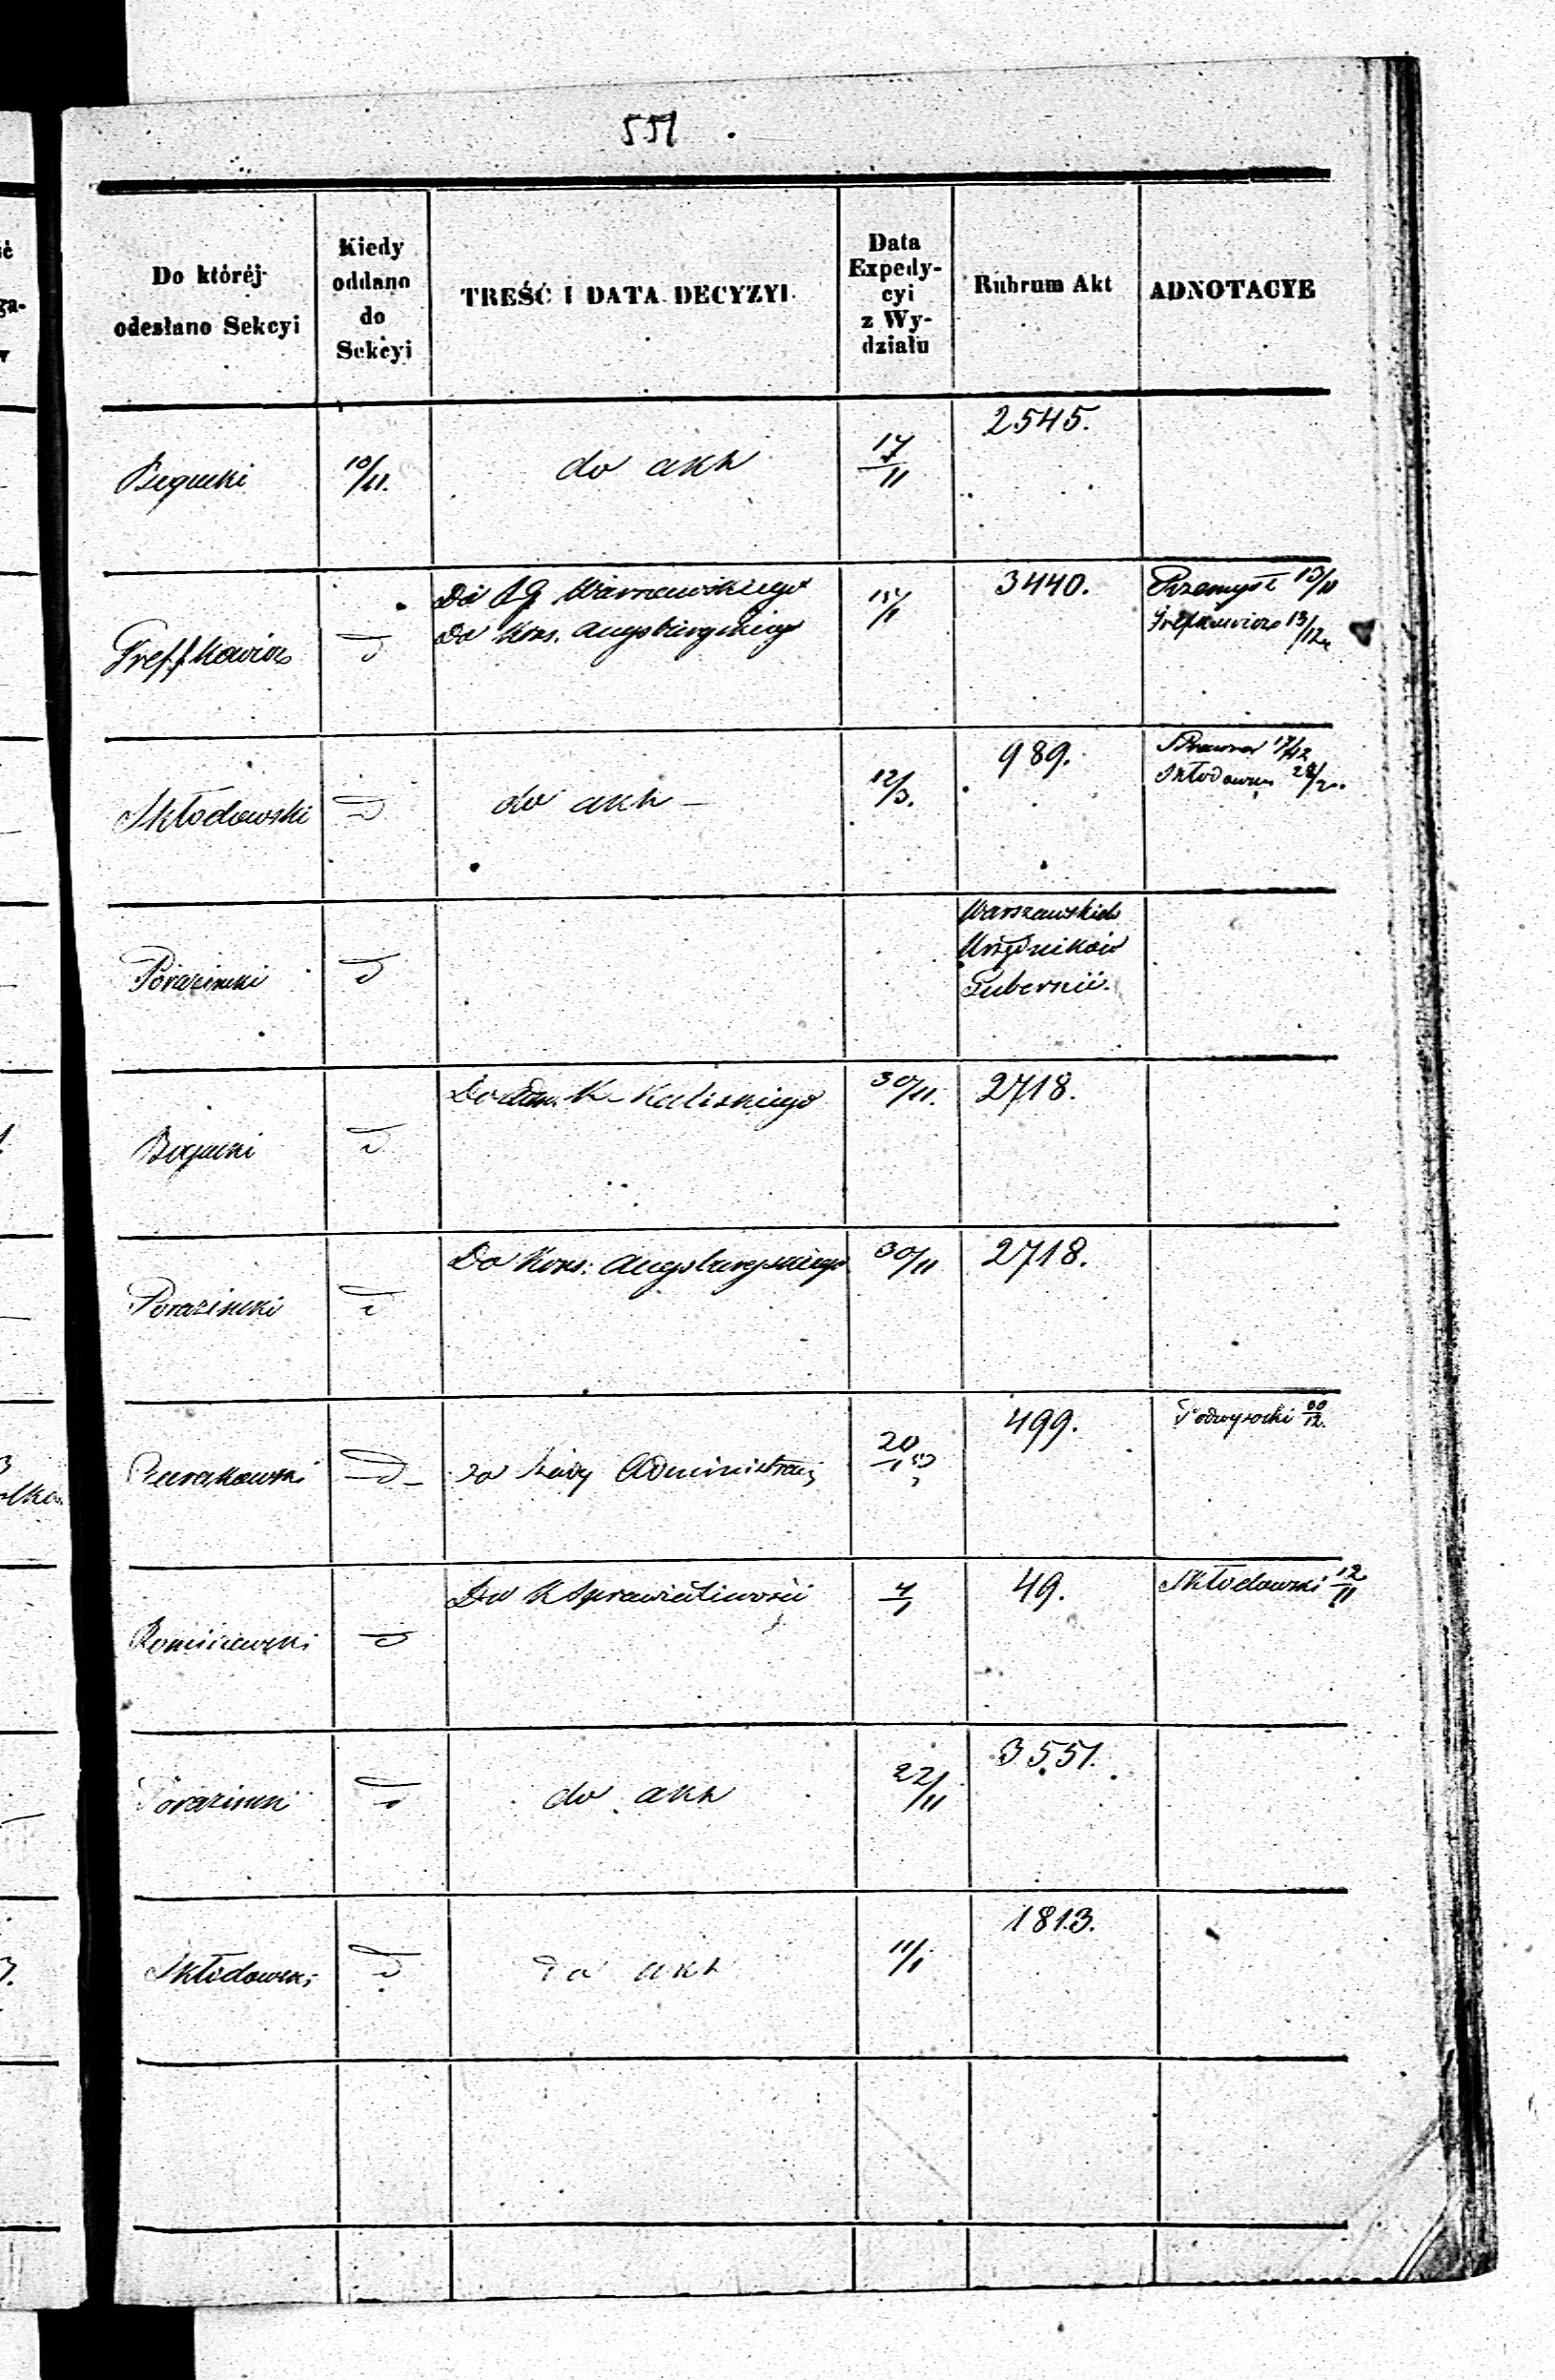 551
Do któréj
odesłano Sekcyi
Kiedy
oddano
do
Sekcyi
TREŚĆ I DATA DECYZYI
Data
Expedy-
cyi
z Wy-
działu
Rubrum Akt
ADNOTACYE
Bogucki
10/11.
do akt
17/11
2545.
Greffkowicz
d
Do R G Warszawskiego
Do Kons. Augsburgskiego
15/1
3440.
Przemysł 13/11
Grefkowicz 13/12
Skłodowski
d
do akt
12/3.
989.
Prawna 17/12
Skłodowski
Poraziński
d
Warszawskich
Urzędników
Gubernii.
Bogucki
d
Kaliskiego
30/11.
2718.
Poraziński
d
Do Kons: Augsburgskiego
30/11
2718.
d
do Rady Administracyj
20/1
499.
Podwysocki
d
Do K Sprawiedliwości
49.
Skłodowski 12/11
Poraziński
d
do akt
22/11
3551.
Skłodowski
d
do akt
11/1
1813.